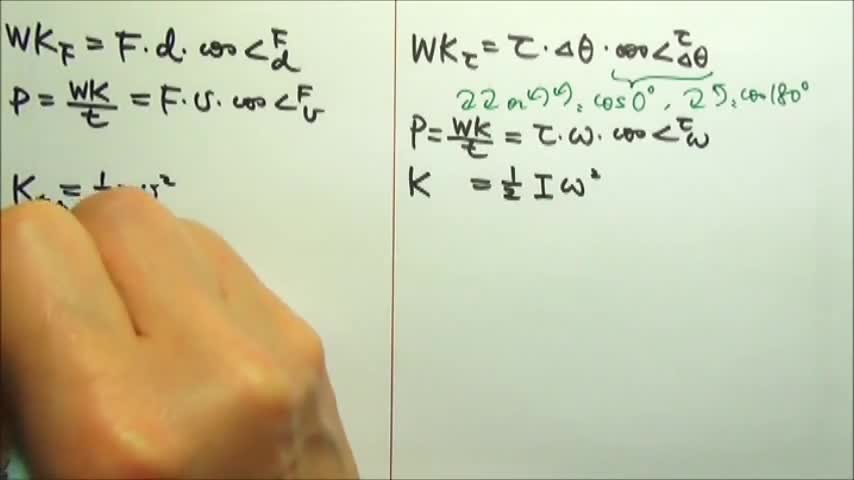 WK_F = F · d · cos<^F_d
P = WK/t = F · v · cos<^F_v
K = 1/2 v²
WK_τ = τ · Δθ · cos<^τ_Δθ
cos0°, cos180°
P = WK/t = τ · ω · cos<^τ_ω
K = 1/2 I ω²